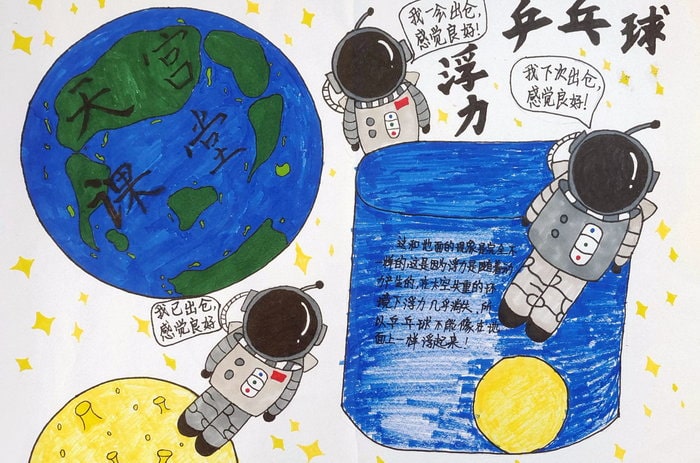 天宫
课堂
我一会出仓,
感觉良好!
乒乓球
浮力
我下次出仓,
感觉良好!
这和地面的现象是完全不
一样的,这是因为浮力是随着重
力产生的,在太空失重的环
境下浮力几乎消失,所
以乒乓球不能像在地
面上一样浮起来!
我已出仓,
感觉良好!